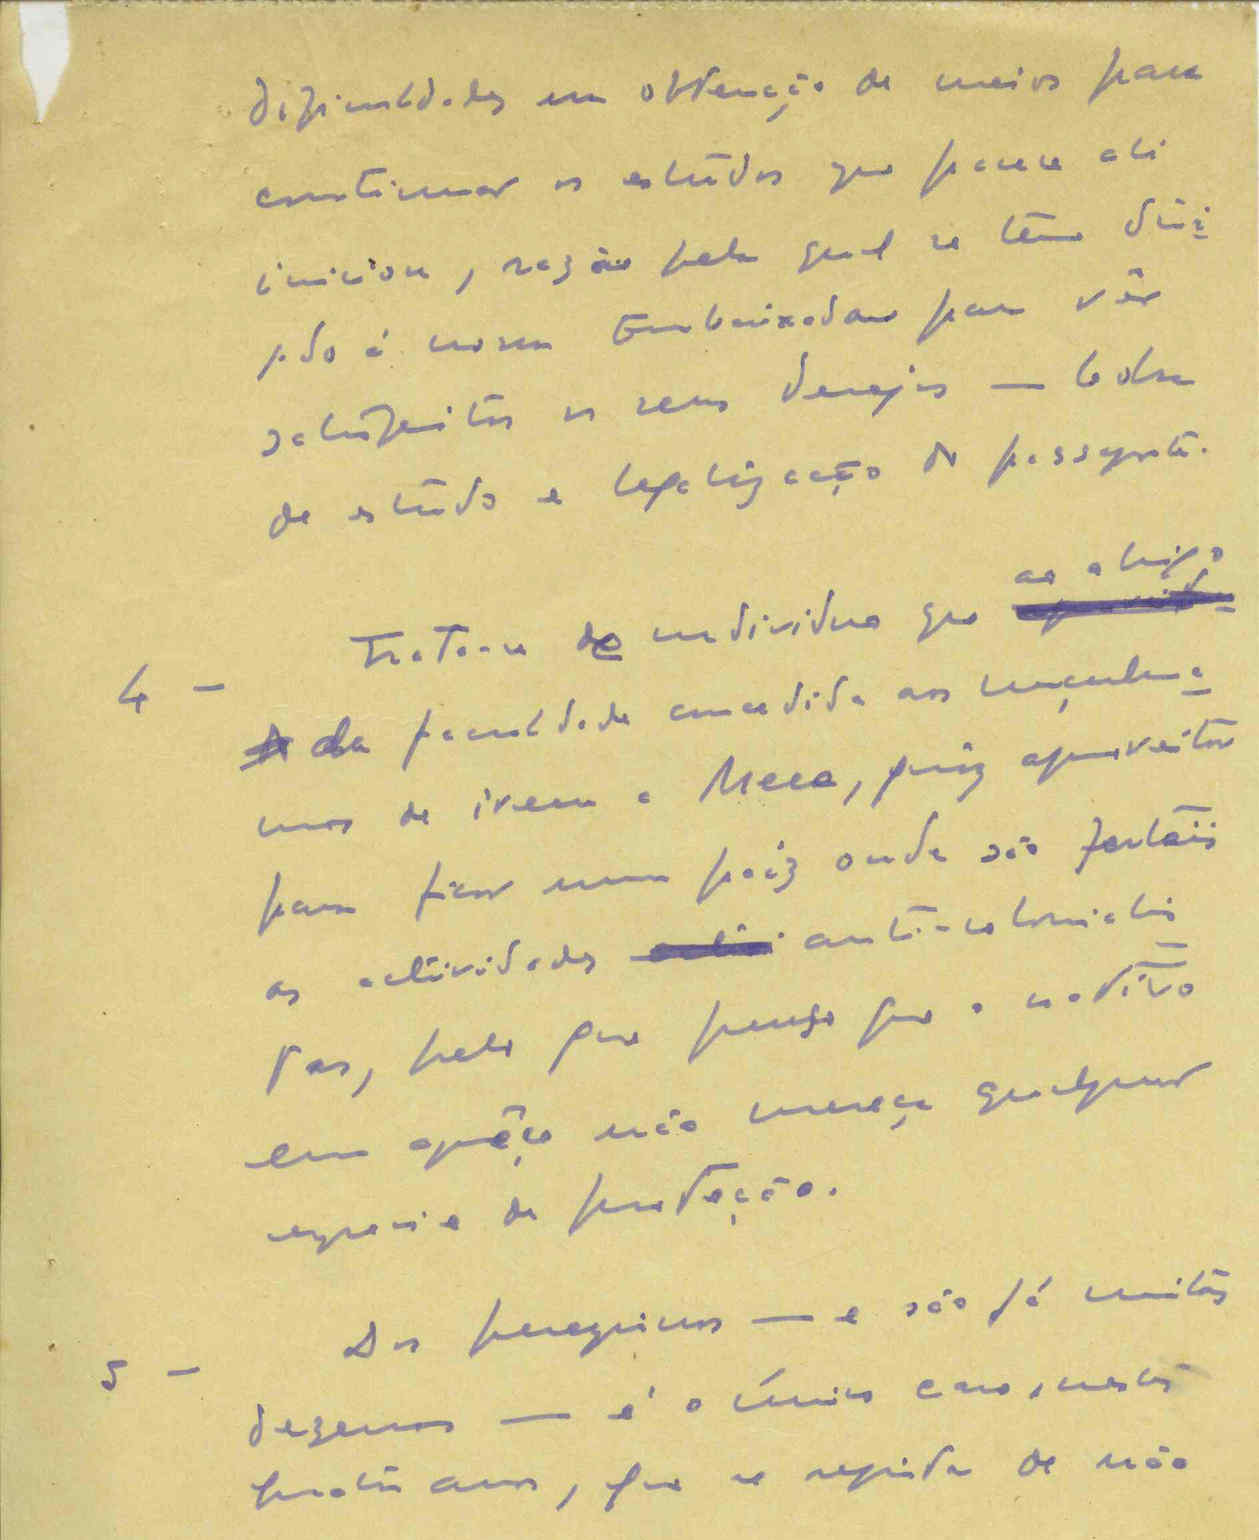 dificuldades em obtenção de meios para
continuar os estudos que parece ali
iniciou, razão pela qual se tem diri
gido à nossa Embaixada para vêr
satisfeitos os seus desejos — bolsa
de estudo e legalização do passaporte.
4 - Trata-se de individuo que ao abrigo
da faculdade concedida aos muçulma
nos de irem a Meca, quiz aproveitar
para ficar num paíz onde são ferteis
as actividades anti-colonialis
tas, pelo que penso que o nativo
em aprêço não mereça qualquer
espécie de proteção.
5 - Dos peregrinos — e são já muitas
dezenas — é o único caso, nestes
quatro anos, que se regista de não